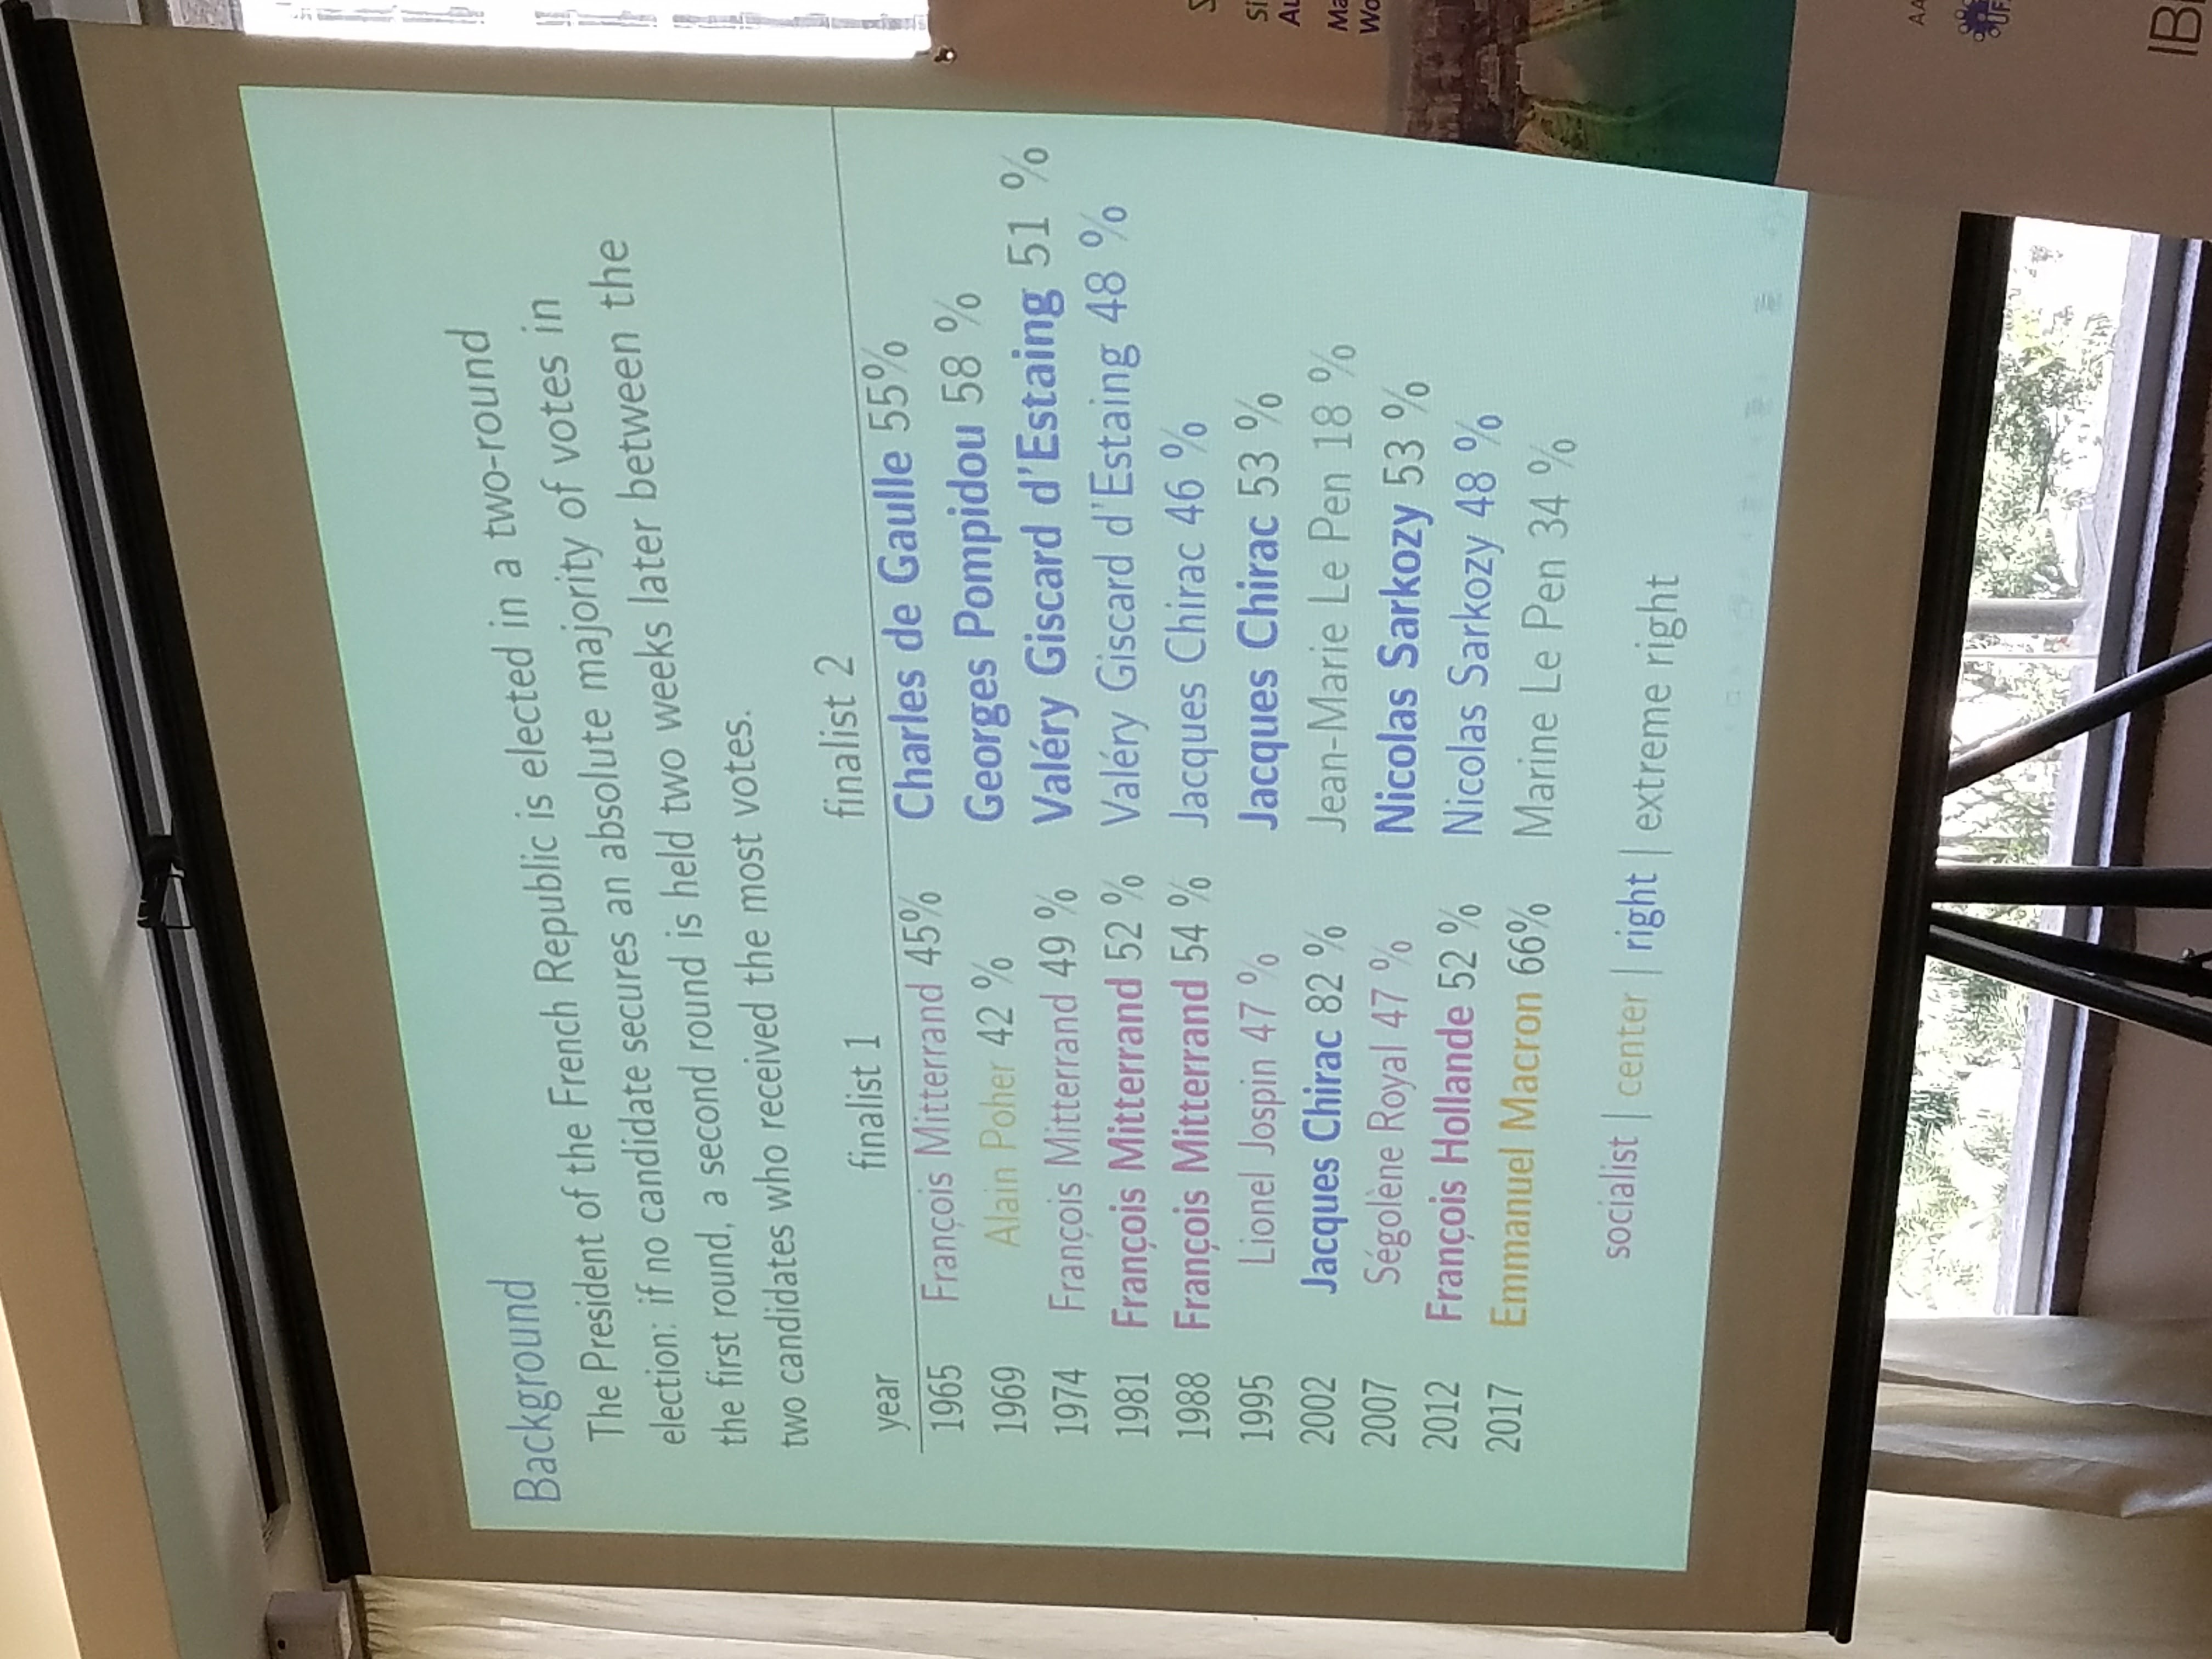 Background
The President of the French Republic is elected in a two-round
election: if no candidate secures an absolute majority of votes in
the first round, a second round is held two weeks later between the
two candidates who received the most votes.
year finalist 1 finalist 2
1965 François Mitterrand 45% Charles de Gaulle 55%
1969 Alain Poher 42 % Georges Pompidou 58 %
1974 François Mitterrand 49 % Valéry Giscard d'Estaing 51 %
1981 François Mitterrand 52 % Valéry Giscard d'Estaing 48 %
1988 François Mitterrand 54 % Jacques Chirac 46 %
1995 Lionel Jospin 47 % Jacques Chirac 53 %
2002 Jacques Chirac 82 % Jean-Marie Le Pen 18 %
2007 Ségolène Royal 47 % Nicolas Sarkozy 53 %
2012 François Hollande 52 % Nicolas Sarkozy 48 %
2017 Emmanuel Macron 66% Marine Le Pen 34 %
socialist | center | right | extreme right